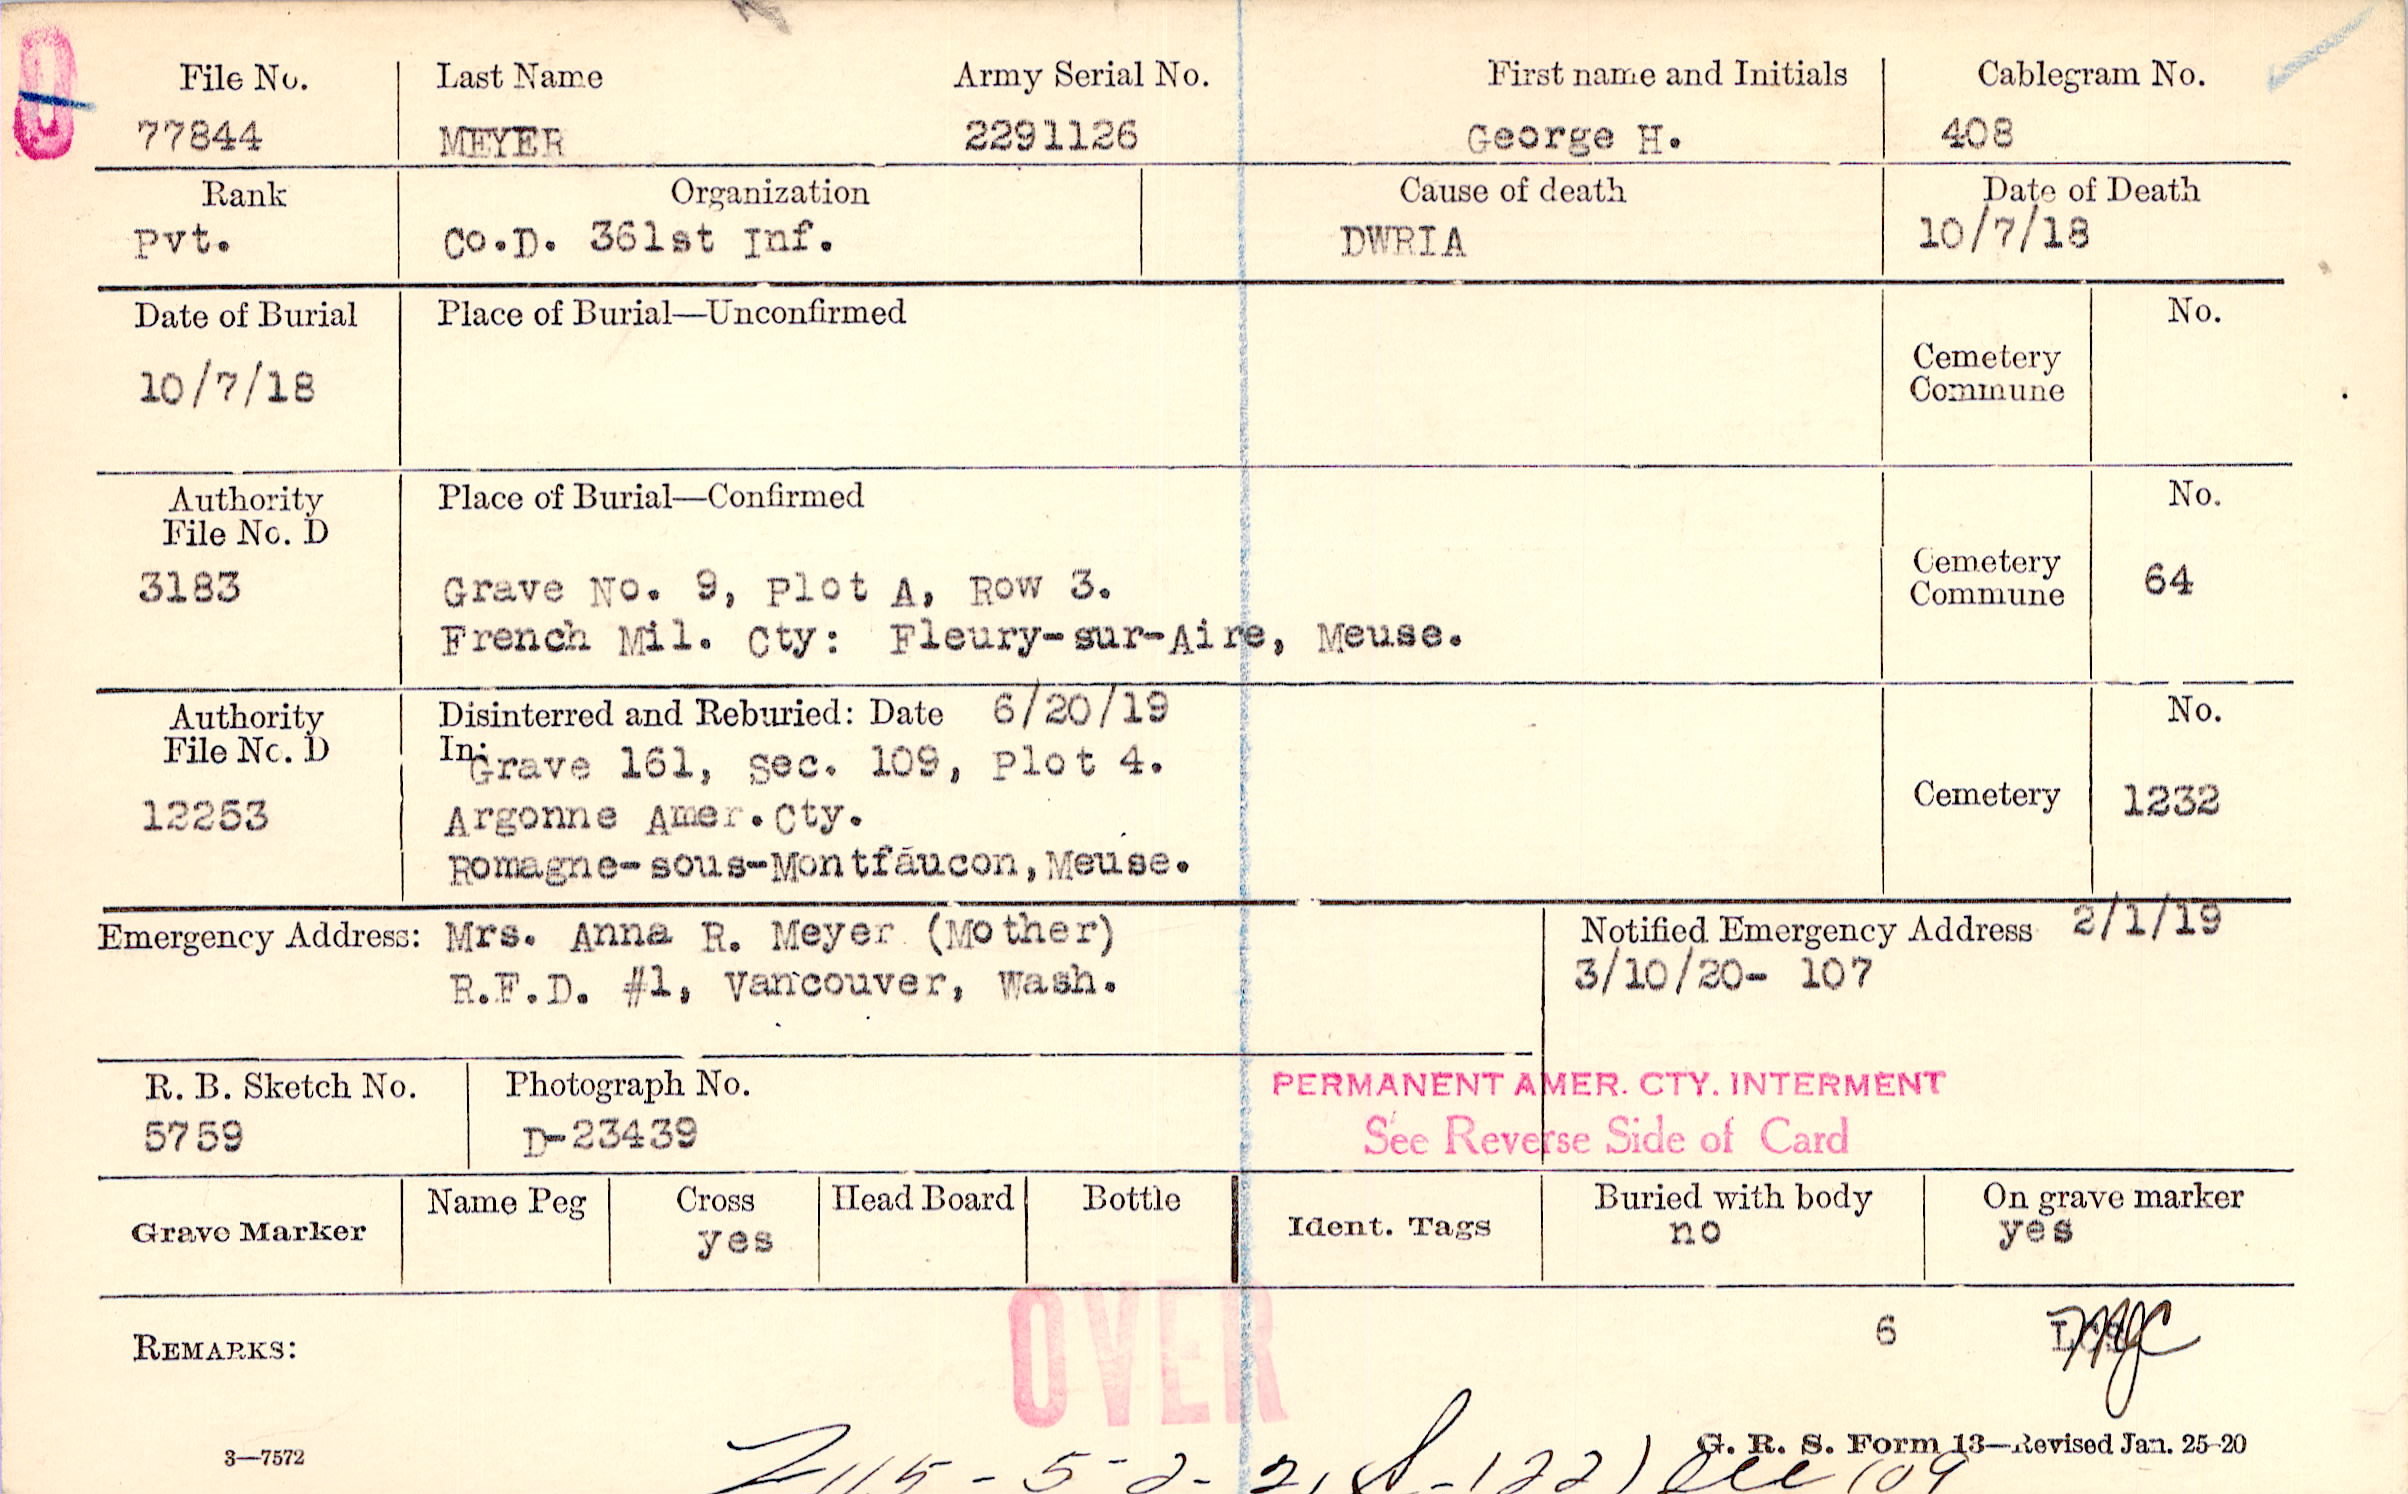 File No. Last Name Army Serial No. First name and Initials Cablegram No.
77844 MEYER 2291126 George H. 408
Rank Organization Cause of death Date of Death
Pvt. Co.D. 361st Inf. DWRIA 10/7/18
Date of Burial Place of Burial—Unconfirmed No.
10/7/18 Cemetery
Commune
Authority Place of Burial—Confirmed No.
File No. D
3183 Grave No. 9, Plot A, Row 3. Cemetery
Commune 64
French Mil. Cty: Fleury-sur-Aire, Meuse.
Authority Disinterred and Reburied: Date 6/20/19 No.
File No. D In: Grave 161, Sec. 109, Plot 4.
12253 Argonne Amer. Cty. Cemetery 1232
Romagne-sous-Montfaucon, Meuse.
Emergency Address: Mrs. Anna R. Meyer (Mother) Notified Emergency Address 2/1/19
R.F.D. #1, Vancouver, Wash. 3/10/20- 107
R. B. Sketch No. Photograph No. PERMANENT AMER. CTY. INTERMENT
5759 D-23439 See Reverse Side of Card
Grave Marker Name Peg Cross Head Board Bottle Ident. Tags Buried with body On grave marker
yes no yes
OVER
REMARKS: 6
3—7572 G. R. S. Form 13—Revised Jan. 25-20